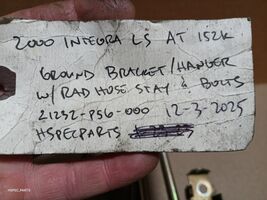 2000 INTEGRA LS AT 152K
GROUND BRACKET/HANGER
W/ RAD HOSE STAY & BOLTS
21232-P56-000 12-3-2025
HSPECPARTS
HSPEC_PARTS